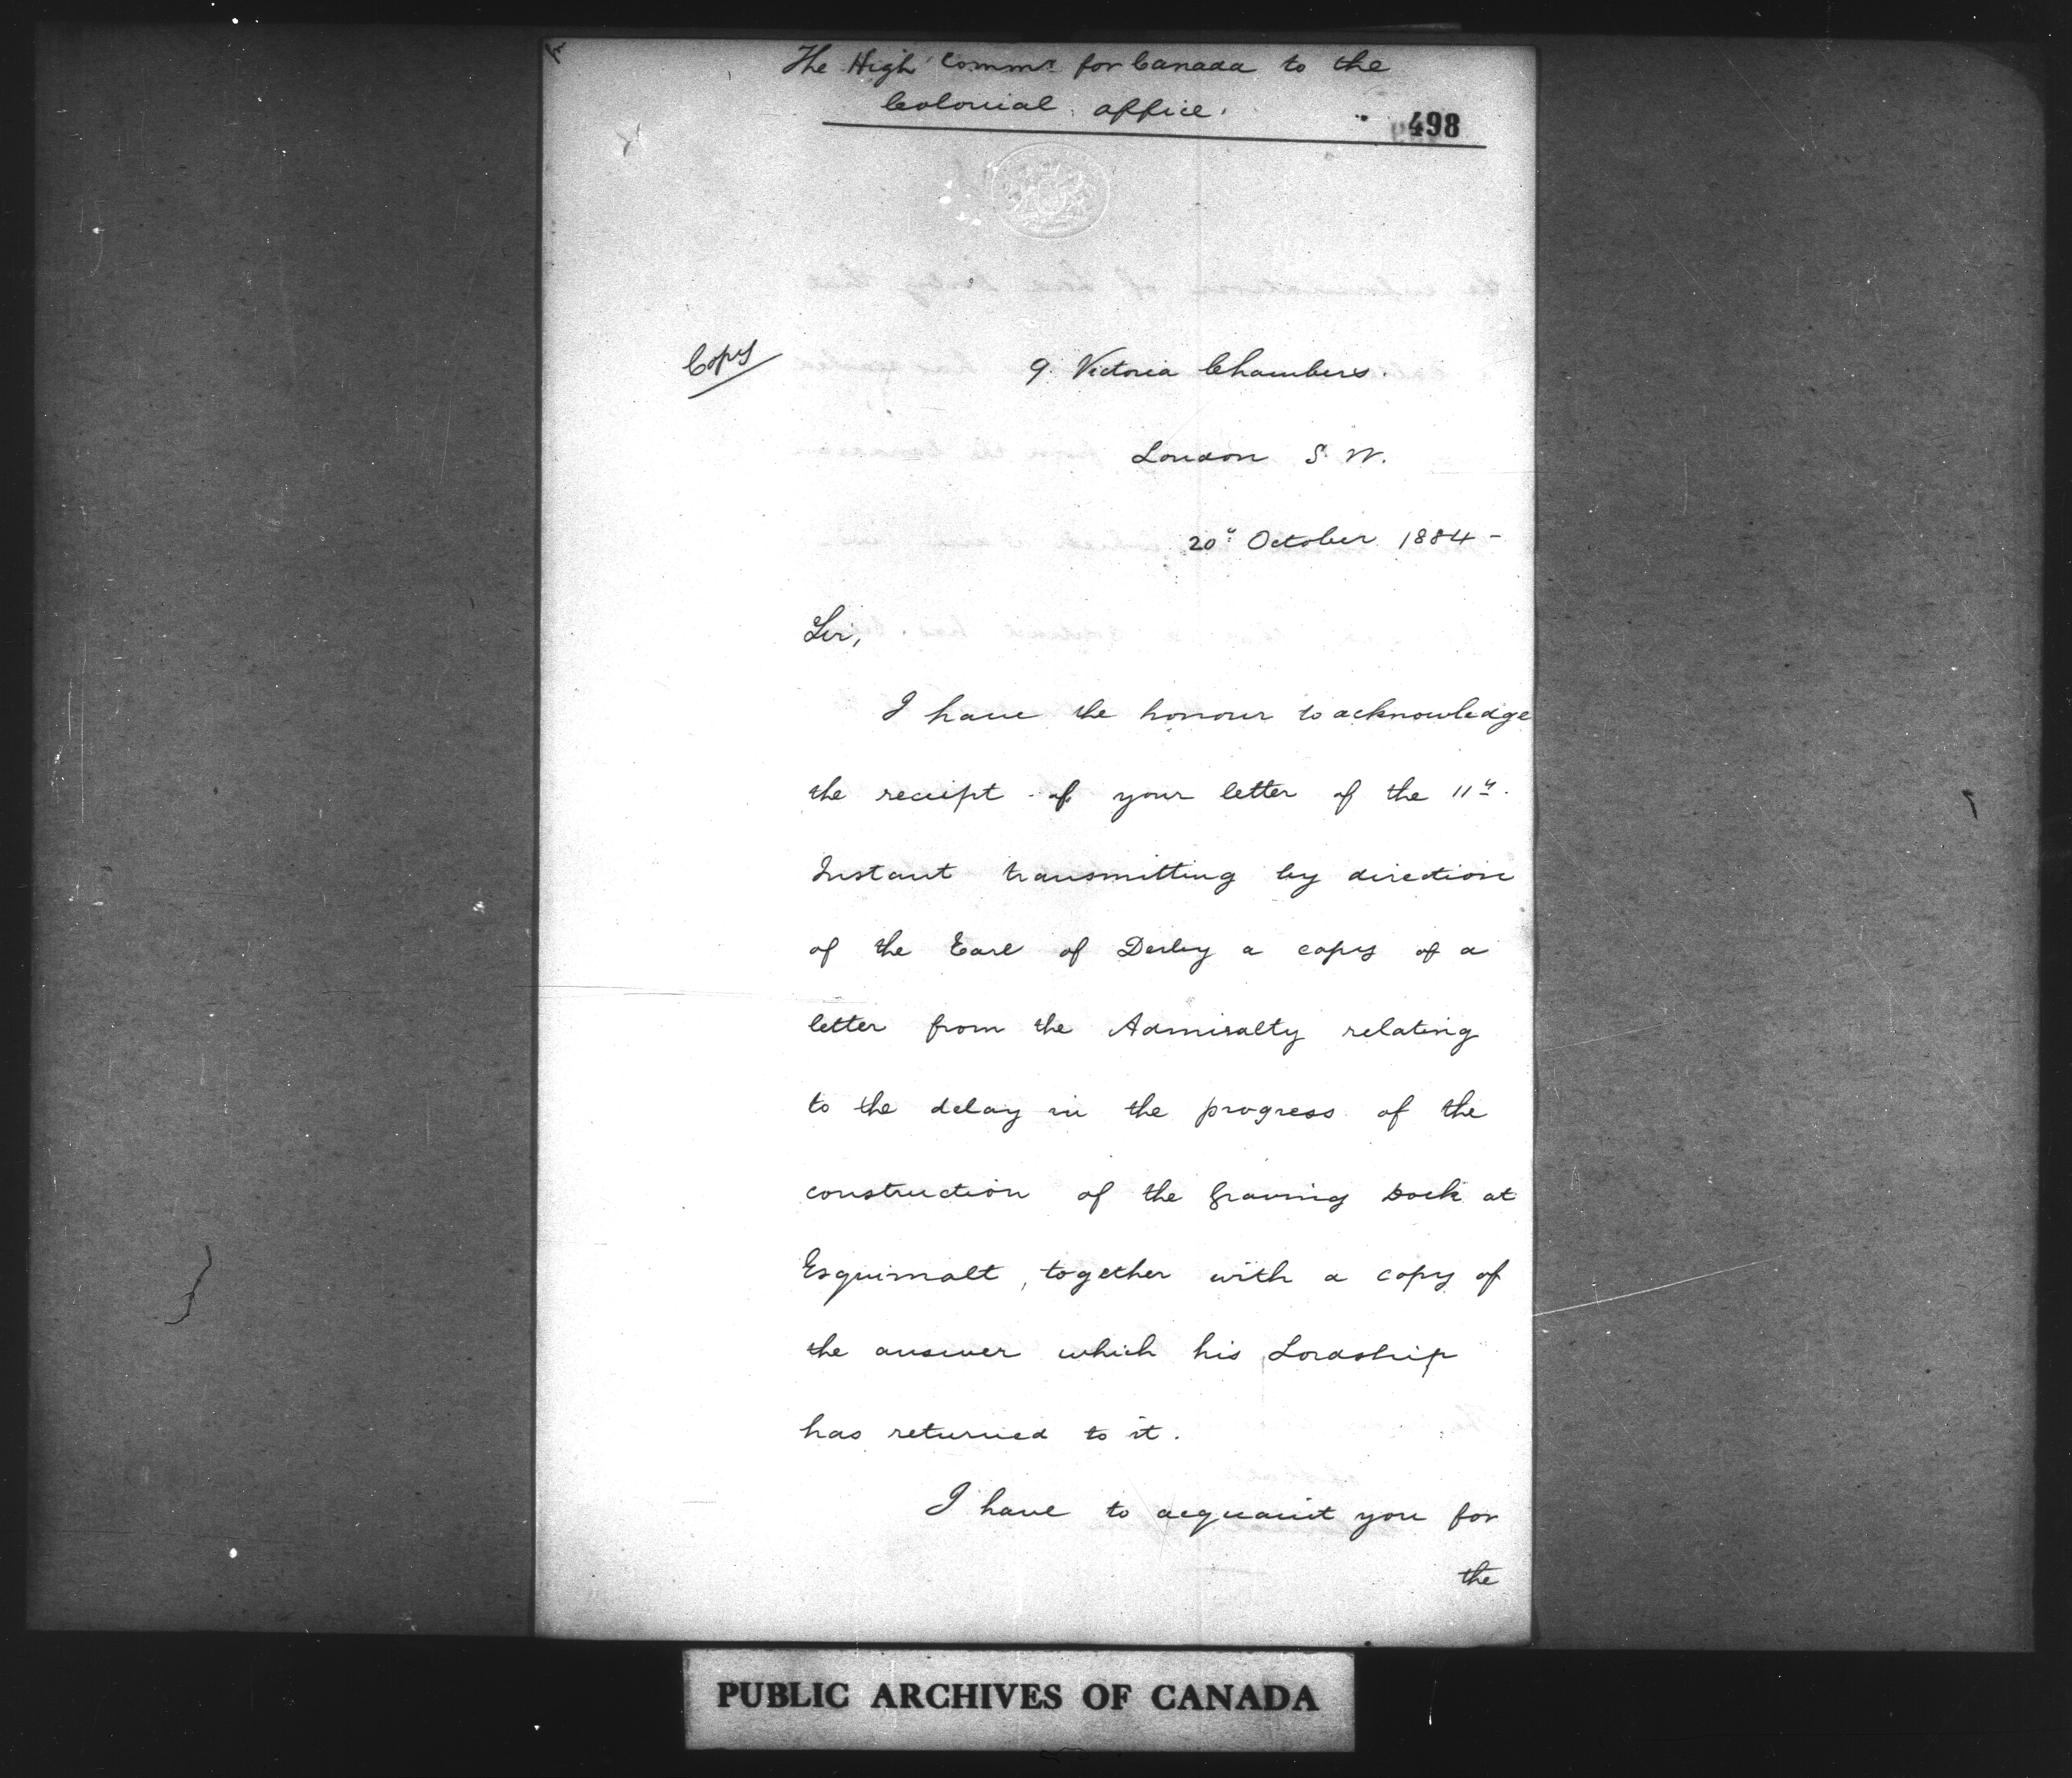 The High Commr for Canada to the
Colonial Office.
498
Copy
9. Victoria Chambers.
London S. W.
20th October 1884 -
Sir,
I have the honour to acknowledge
the receipt of your letter of the 11th.
Instant transmitting by direction
of the Earl of Derby a copy of a
letter from the Admiralty relating
to the delay in the progress of the
construction of the Graving Dock at
Esquimalt, together with a copy of
the answer which his Lordship
has returned to it.
I have to acquaint you for
the
PUBLIC ARCHIVES OF CANADA